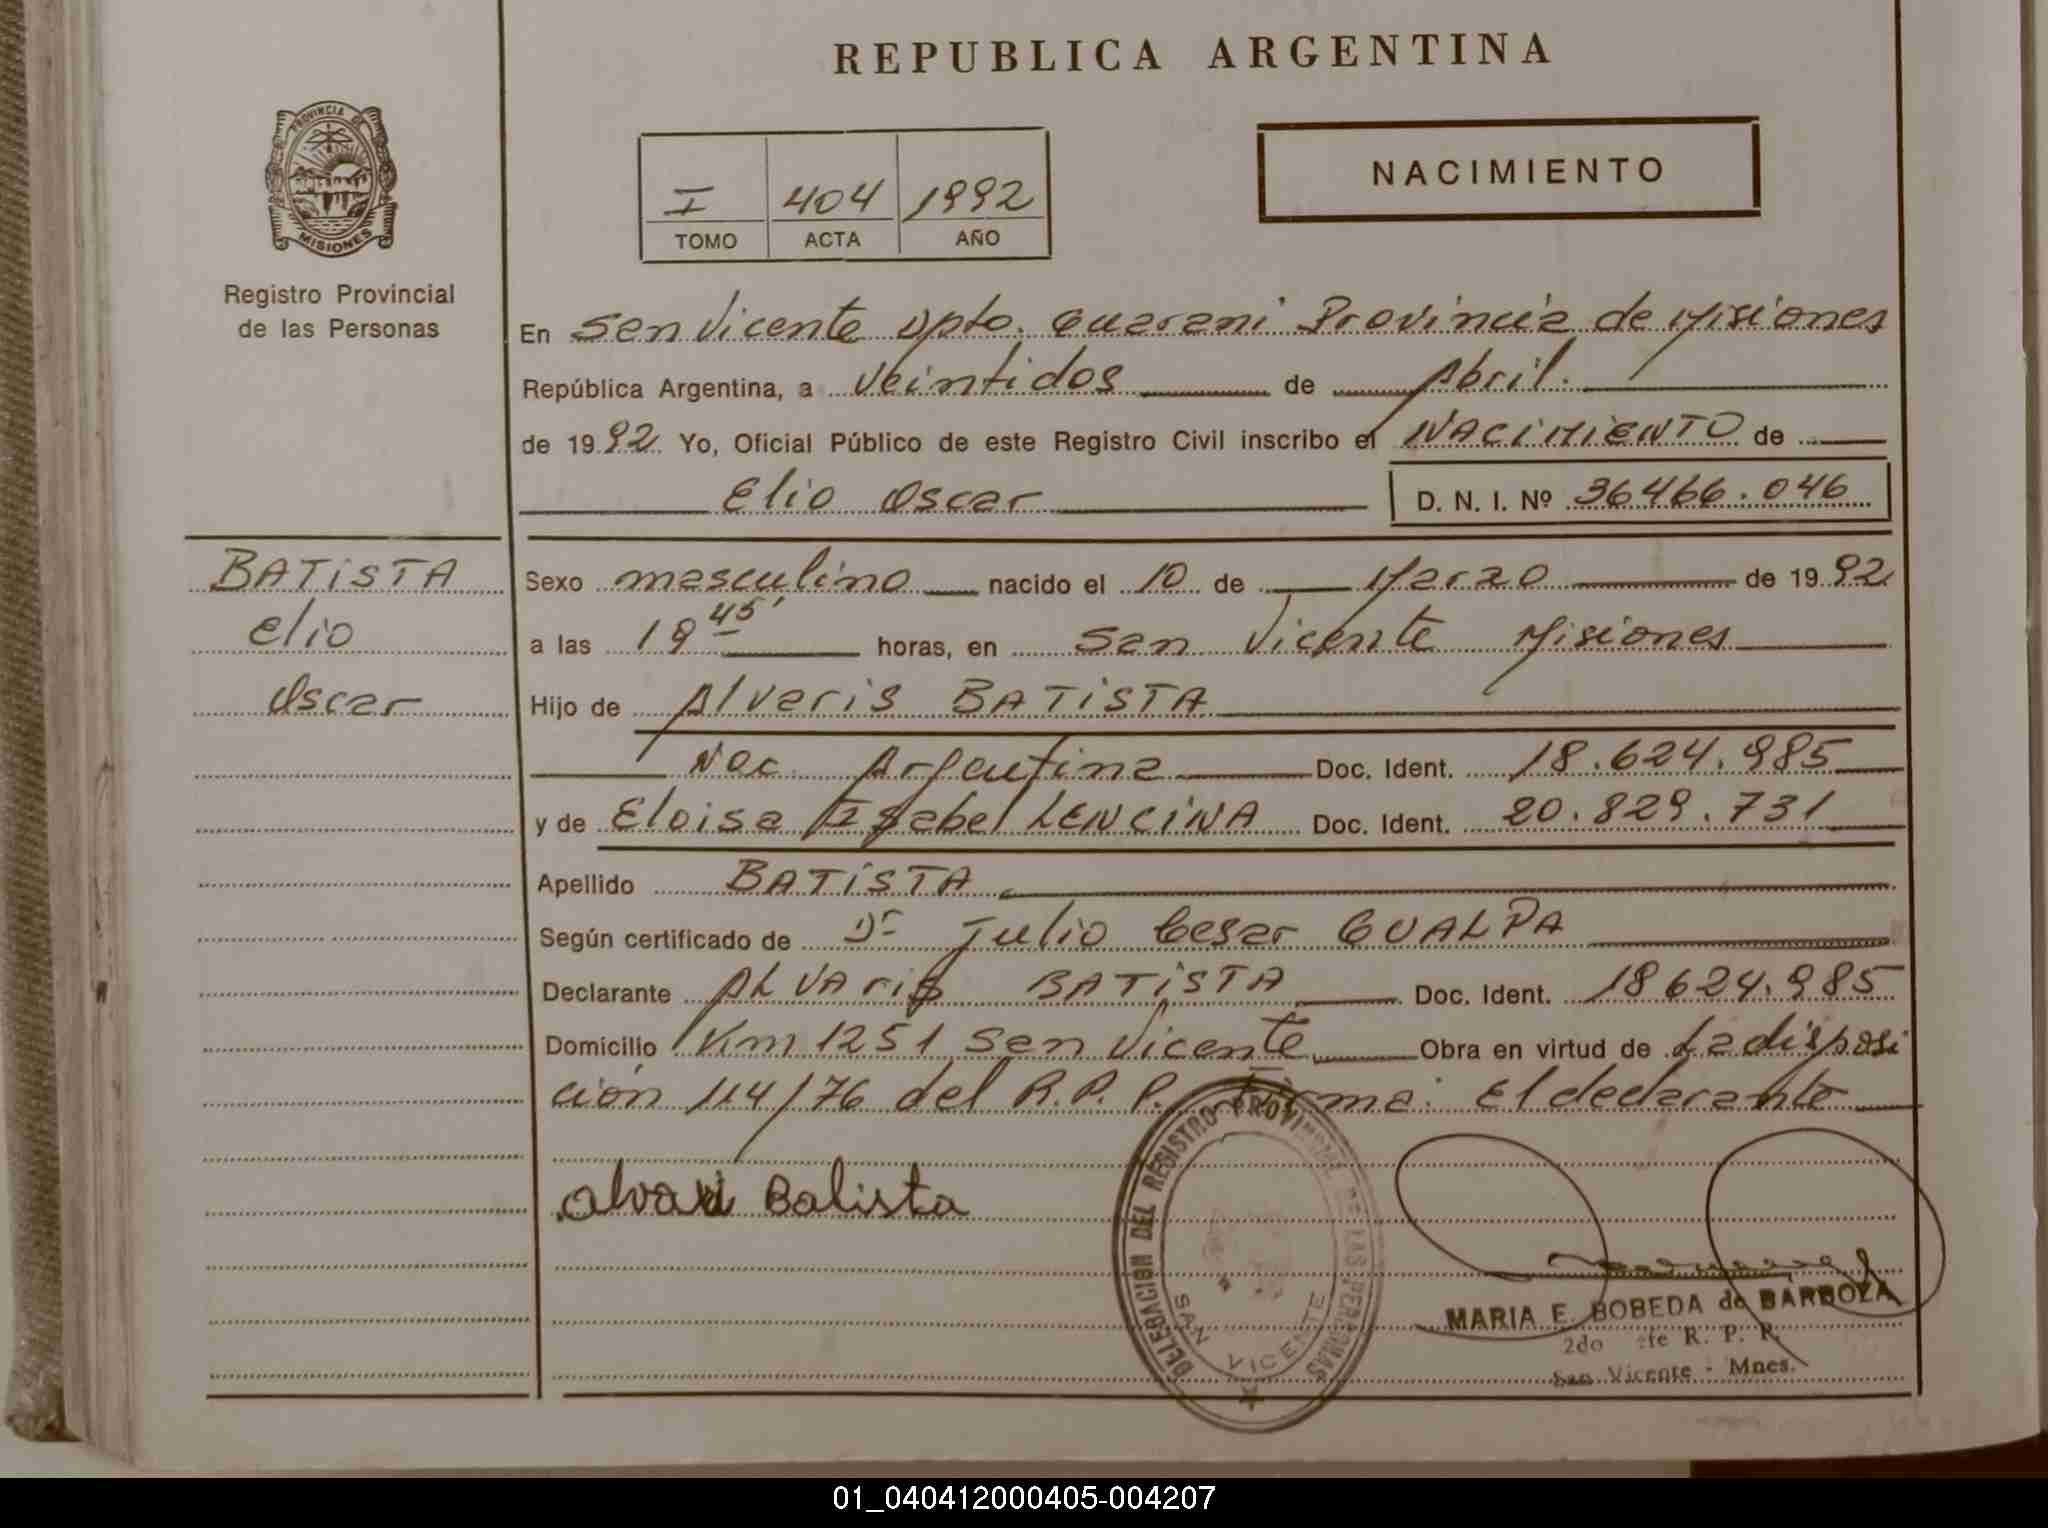 REPUBLICA ARGENTINA
PROVINCIA DE
MISIONES
Registro Provincial
de las Personas
NACIMIENTO
I 404 1992
TOMO ACTA AÑO
En San Vicente Dpto. Guarani Provincia de Misiones
República Argentina, a Veintidos de Abril.
de 1992 Yo, Oficial Público de este Registro Civil inscribo el NACIMIENTO de
Elio Oscar D. N. I. Nº 36466.046
BATISTA
Elio
Oscar
Sexo masculino nacido el 10 de Marzo de 1992
a las 19 45' horas, en San Vicente Misiones
Hijo de Alvaris BATISTA
Nac. Argentina Doc. Ident. 18.624.985
y de Eloisa Isabel LENCINA Doc. Ident. 20.829.731
Apellido BATISTA
Según certificado de Dr Julio Cesar GUALPA
Declarante ALVARIS BATISTA Doc. Ident. 18624.985
Domicilio Km 1251 San Vicente Obra en virtud de La disposi
ción 114/76 del R.P.P. Firma: El declarante
Alvari Batista
DELEGACION DEL REGISTRO PROVINCIAL DE LAS PERSONAS
SAN VICENTE
MARIA E. BOBEDA de BARBOZA
2do R. P. P.
San Vicente - Mnes.
01_040412000405-004207